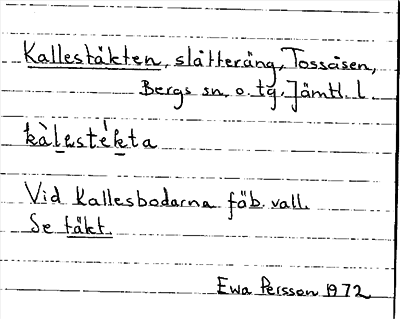 Kallestäkten, slåtteräng, Tossåsen,
Bergs sn. o. tg. Jämtl. l
kàlestékta
Vid Kallesbodarna fäb. vall.
Se täkt.
Ewa Persson 1972